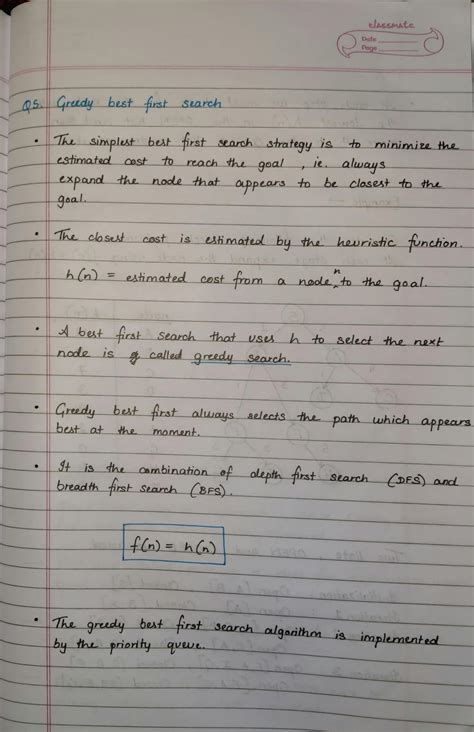 classmate
Date
Page
Q5. Greedy best first search
• The simplest best first search strategy is to minimize the
estimated cost to reach the goal, ie. always
expand the node that appears to be closest to the
goal.
• The closest cost is estimated by the heuristic function.
h(n) = estimated cost from a node n to the goal.
• A best first search that uses h to select the next
node is called greedy search.
• Greedy best first always selects the path which appears
best at the moment.
• It is the combination of depth first search (DFS) and
breadth first search (BFS).
f(n) = h(n)
• The greedy best first search algorithm is implemented
by the priority queue.